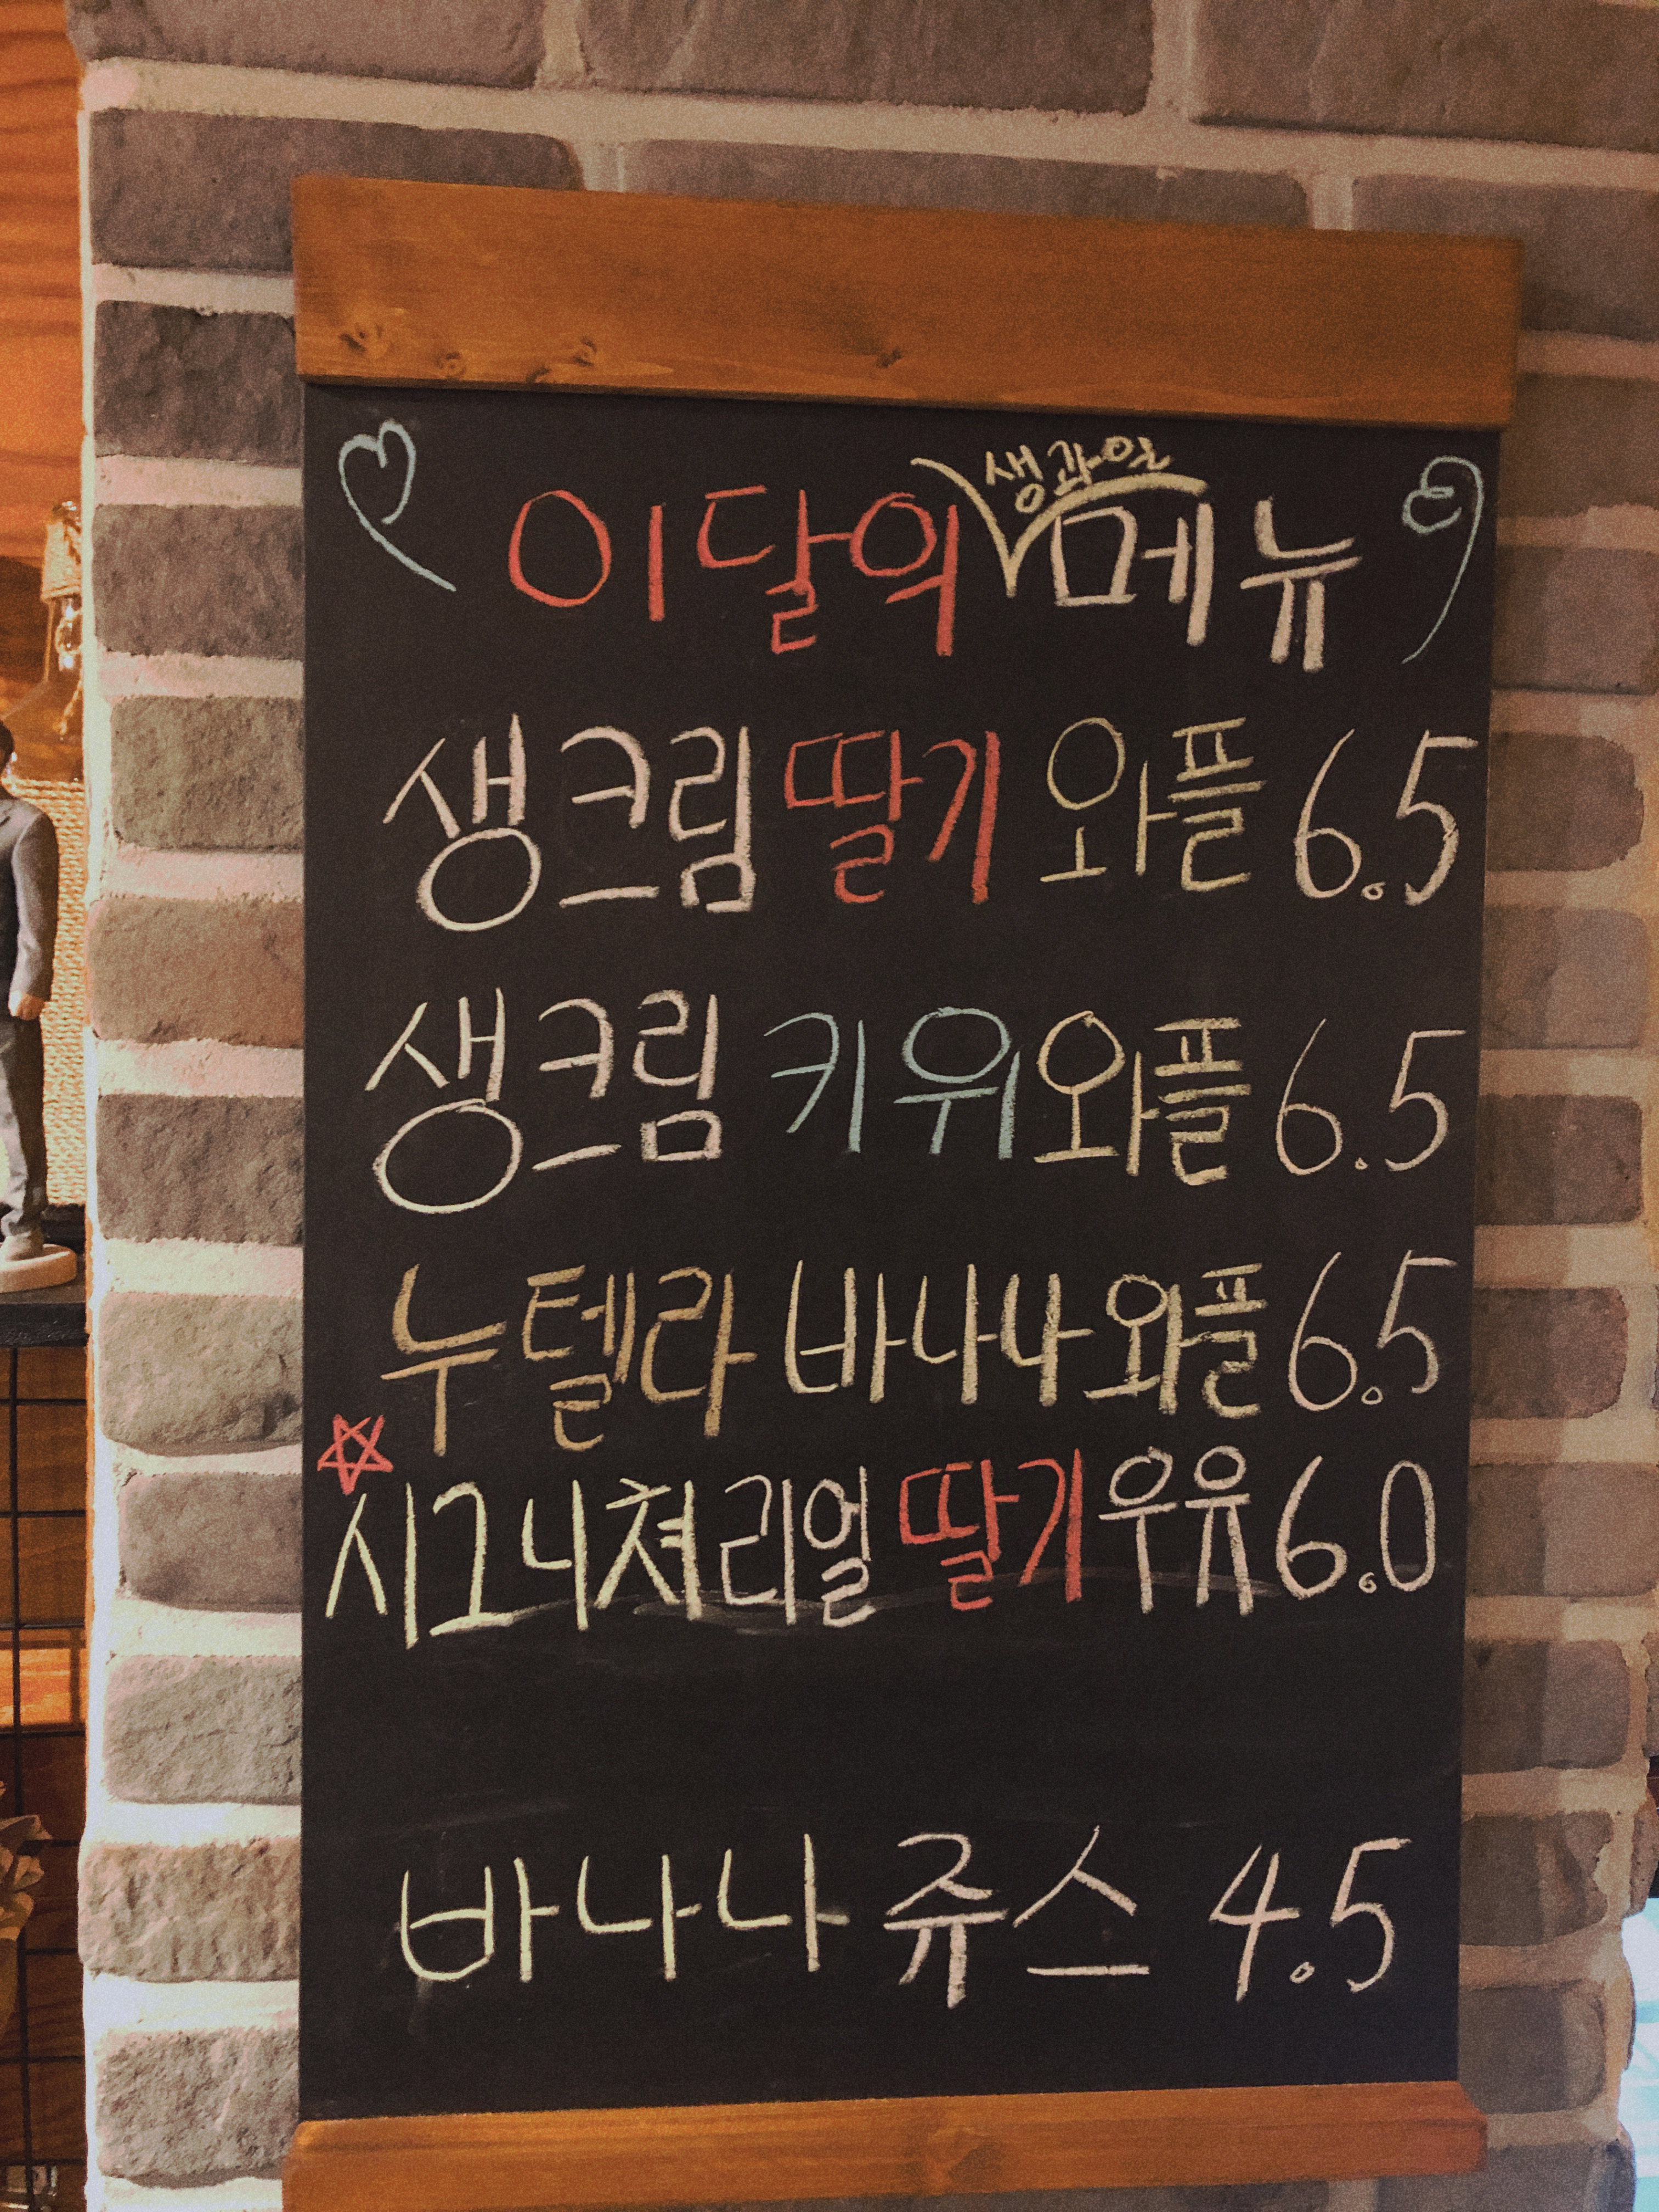 이달의 생과일 메뉴
생크림 딸기 와플 6.5
생크림 키위 와플 6.5
누텔라 바나나 와플 6.5
시그니쳐 리얼 딸기 우유 6.0
바나나 쥬스 4.5